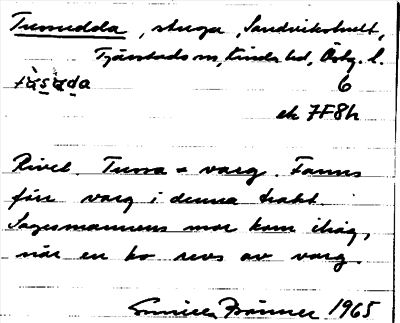 Tussudda, stuga, Sandvikstult,
Tjärstads sn, Kinda hd, Östg. l.
6
ek 7F8h
Rivet. Tussa = varg. Fanns
förr varg i denna trakt.
Sagesmannens mor kom ihåg,
när en ko revs av varg.
Gunilla Brånner 1965